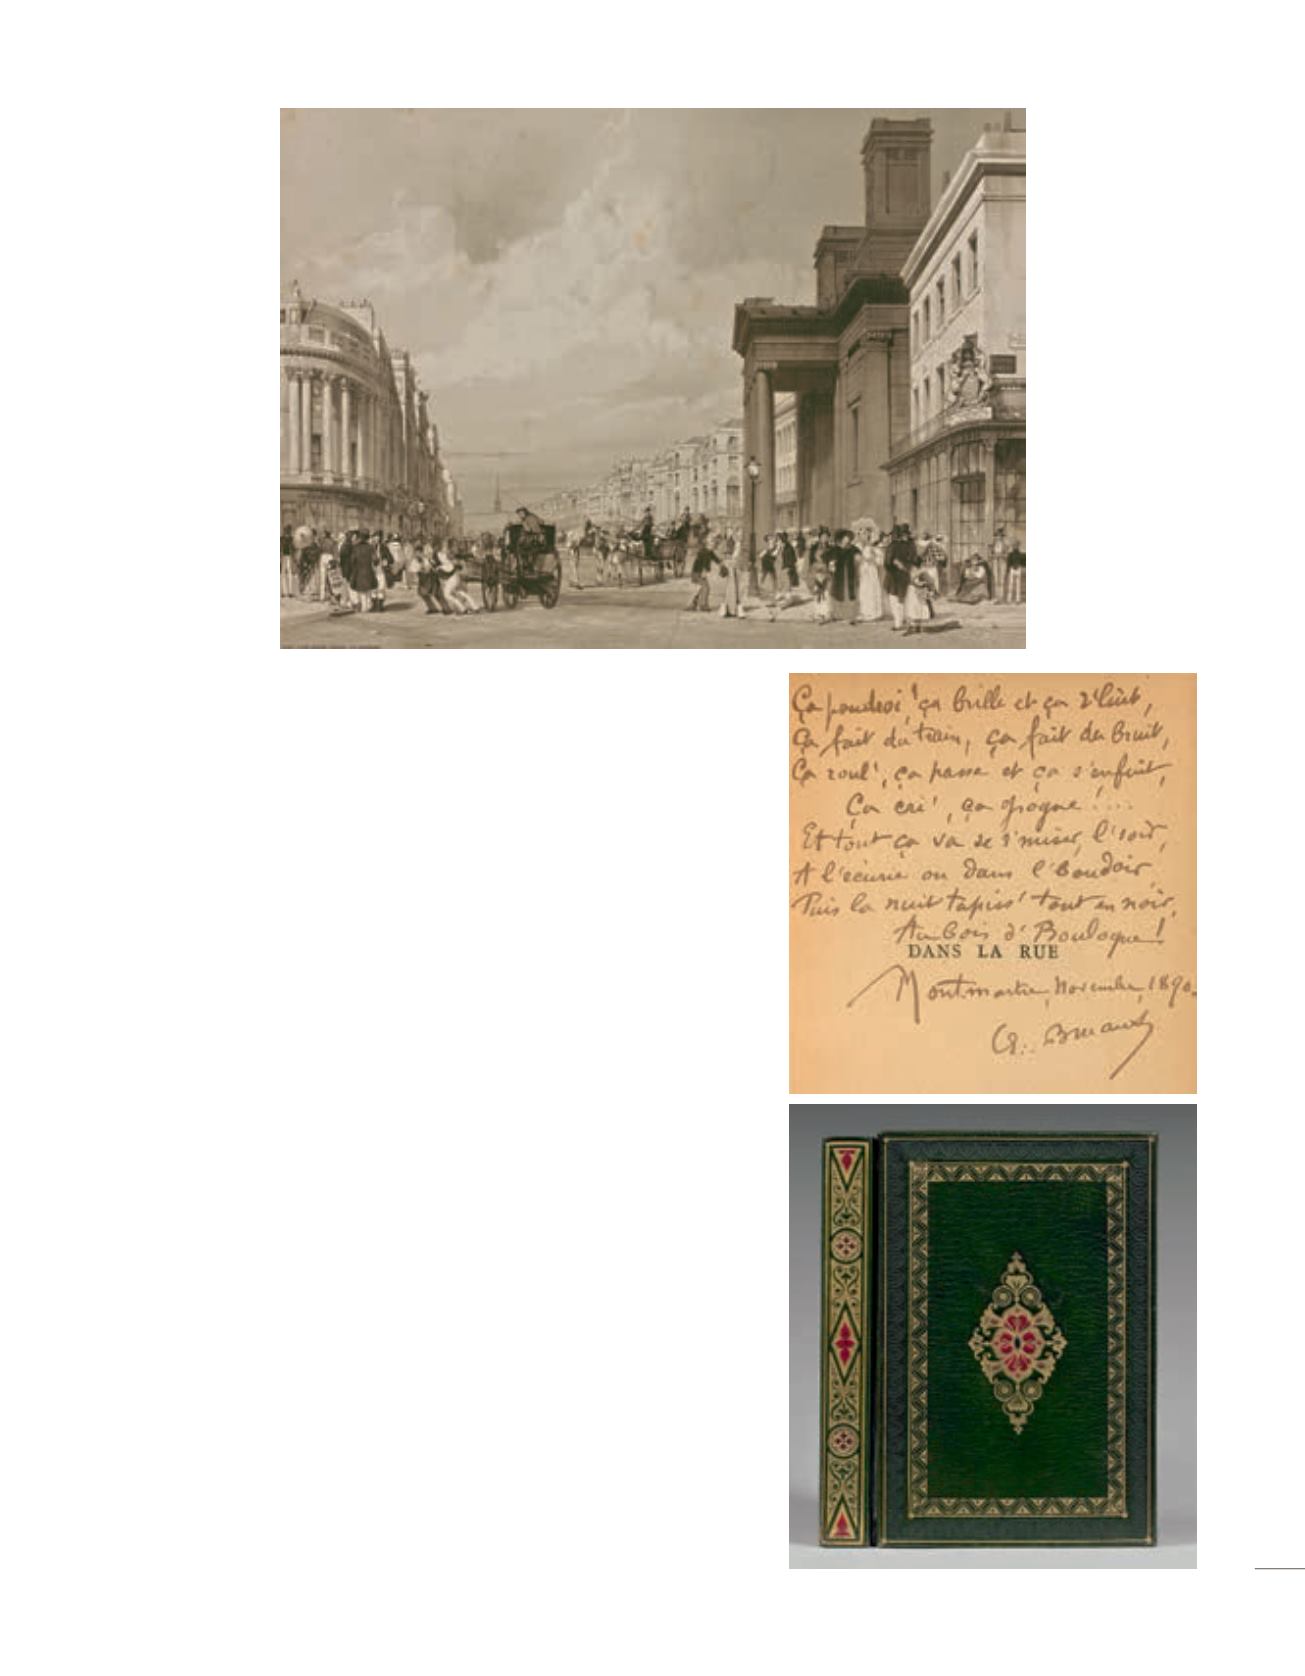 Ça poudroi' ça brille et ça r'luit,
Ça fait du train, ça fait du bruit,
Ça roul', ça passe et ça s'enfuit,
Ça cri', ça grogne!...
Et tout ça va se r'miser, l'soir,
A l'écurie ou dans l'Boudoir
Puis la nuit tapiss' tout en noir,
Au bois d'Boulogne!
DANS LA RUE
Montmartre, Novembre, 1890.
A. Bruant